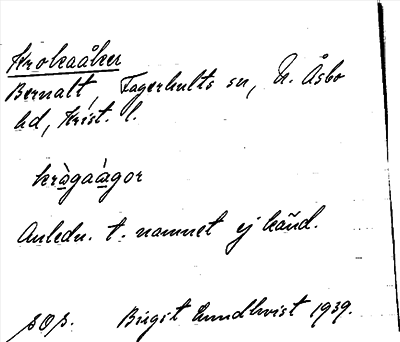 Krokaåker
Bernalt, Fagerhults sn, N. Åsbo
hd, Krist. l.
kràgaágor
Anledn. t. namnet ej känd.
sOs. Birgit Lundkvist 1939.